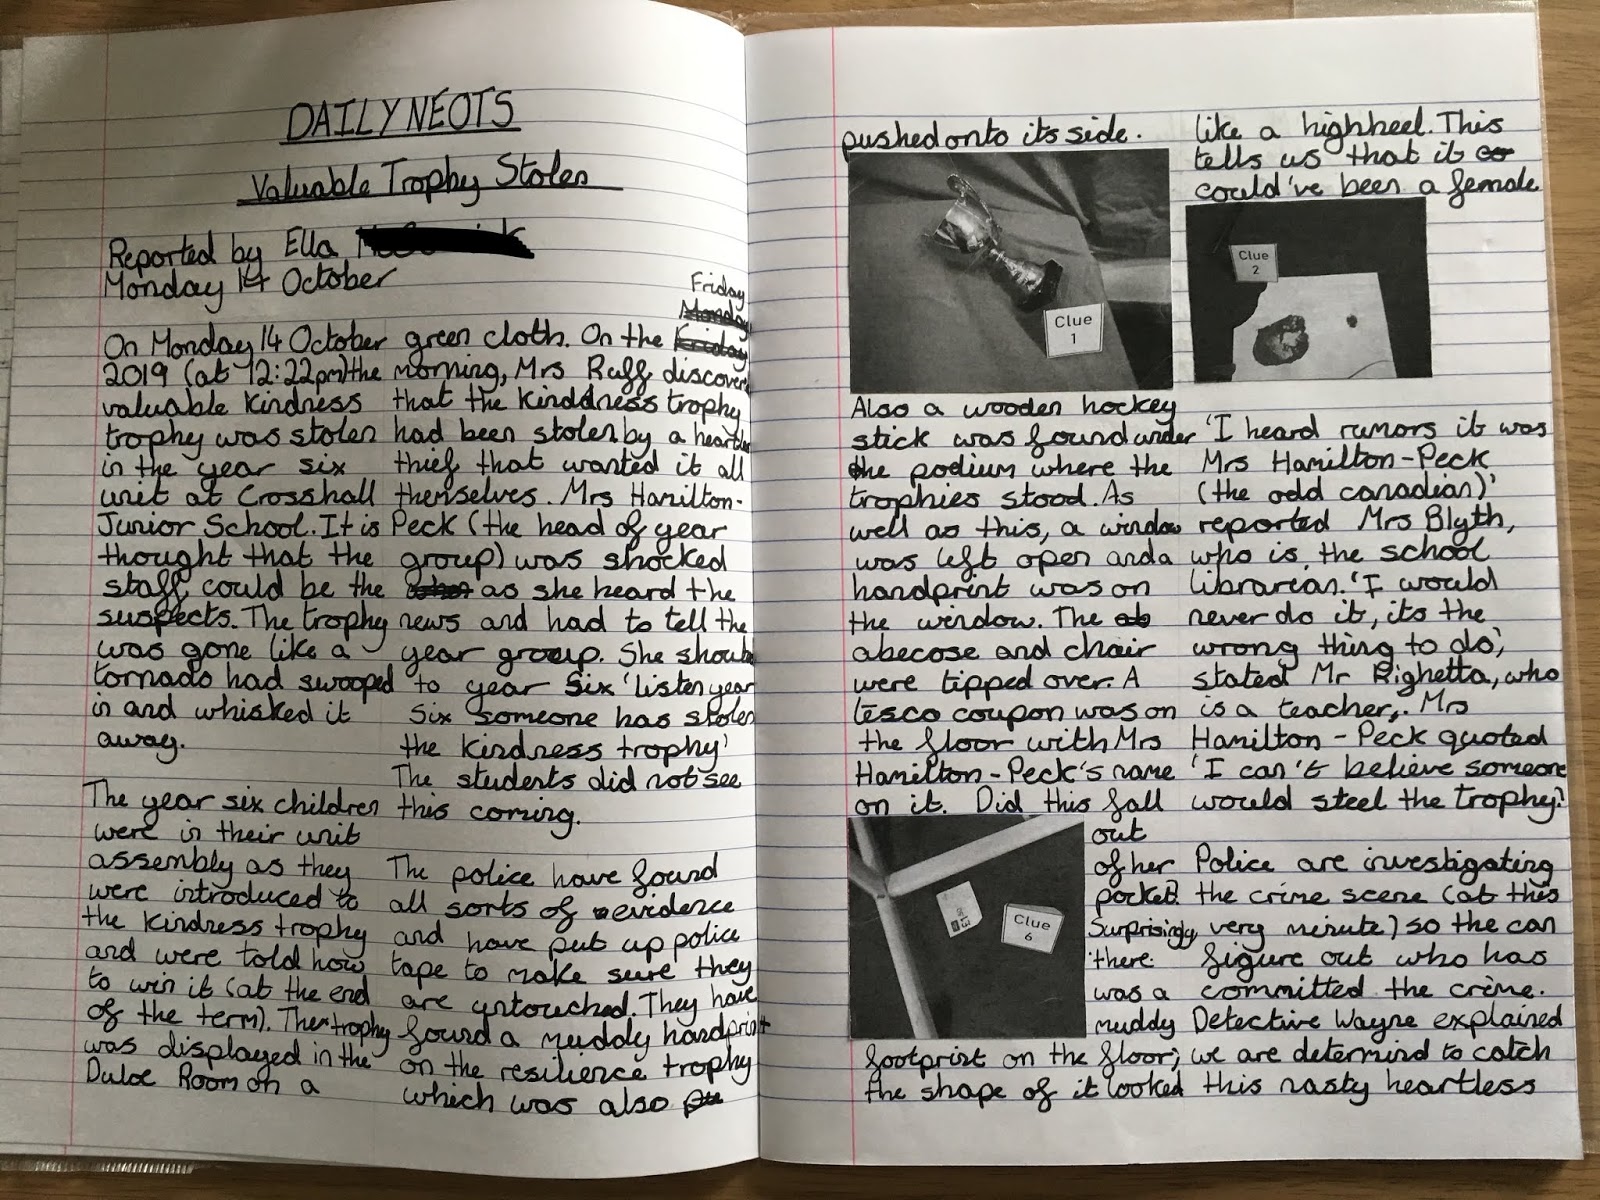 DAILY NEOTS
Valuable Trophy Stolen
Reported by Ella
Monday 14 October
On Monday 14 October
2019 (at 12:22pm) the
valuable kindness
trophy was stolen
in the year six
unit at Crosshall
Junior School. It is
thought that the
staff could be the
suspects. The trophy
was gone like a
tornado had swooped
in and whisked it
away.
The year six children
were in their unit
assembly as they
were introduced to
the kindness trophy
and were told how
to win it (at the end
of the term). The trophy
was displayed in the
Duloe Room on a
Friday
Monday
green cloth. On the Friday
morning, Mrs Ruff discovered
that the kinddness trophy
had been stolen by a heartless
thief that wanted it all
themselves. Mrs Hamilton-
Peck (the head of year
group) was shocked
as she heard the
news and had to tell the
year group. She shouted
to year six 'listen year
six someone has stolen
the kindness trophy'
The students did not see
this coming.
The police have found
all sorts of evidence
and have put up police
tape to make sure they
are untouched. They have
found a muddy handprint
on the resilience trophy
which was also pu
pushed onto its side.
Clue
1
Also a wooden hockey
stick was found under
the podium where the
trophies stood. As
well as this, a window
was left open and a
handprint was on
the window. The ab
abecose and chair
were tipped over. A
tesco coupon was on
the floor with Mrs
Hamilton-Peck's name
on it. Did this fall
out
of her
pocket?
Surprisingly,
there
was a
muddy
Clue
6
footprint on the floor;
the shape of it looked
like a highheel. This
tells us that it co
could've been a female
Clue
2
'I heard rumors it was
Mrs Hamilton-Peck
(the odd canadian)'
reported Mrs Blyth,
who is, the school
librarian. 'I would
never do it, its the
wrong thing to do',
stated Mr Righetta, who
is a teacher,. Mrs
Hamilton-Peck quoted
'I can't believe someone
would steel the trophy?'
Police are investigating
the crime scene (at this
very minute) so the can
figure out who has
committed the crime.
Detective Wayne explained
we are determind to catch
this nasty heartless